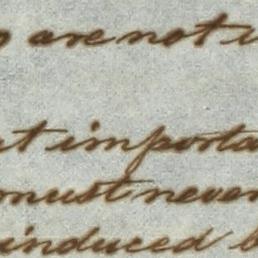 are not
importa
must never
induced b